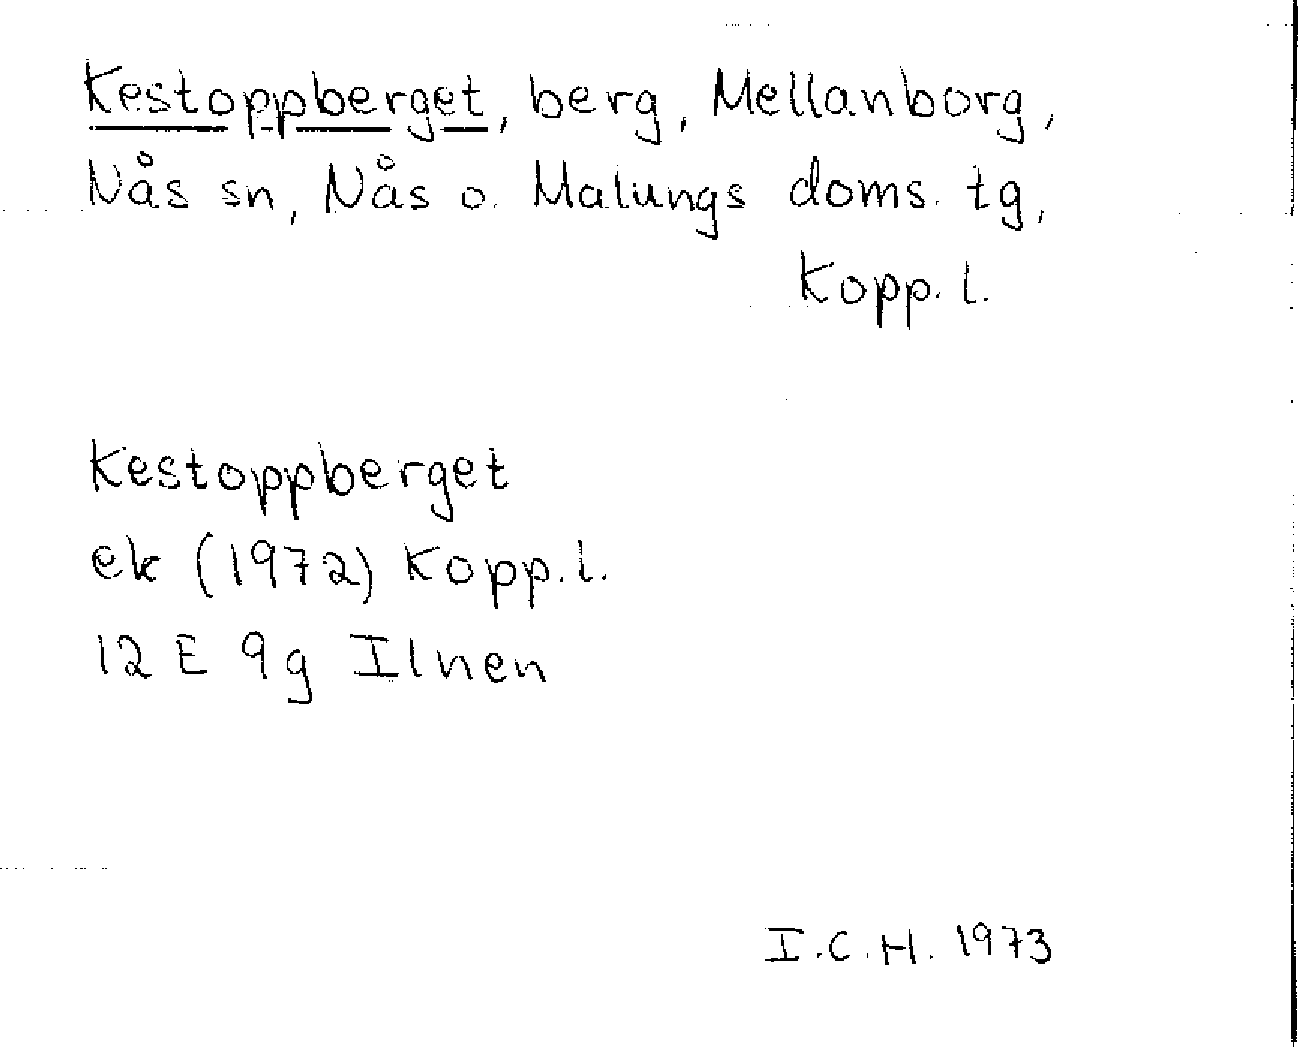 Kestoppberget, berg, Mellanborg,
Nås sn, Nås o. Malungs doms. tg,
Kopp. l.
Kestoppberget
ek (1972) Kopp. l.
12 E 9g Ilnen
I.C.H. 1973